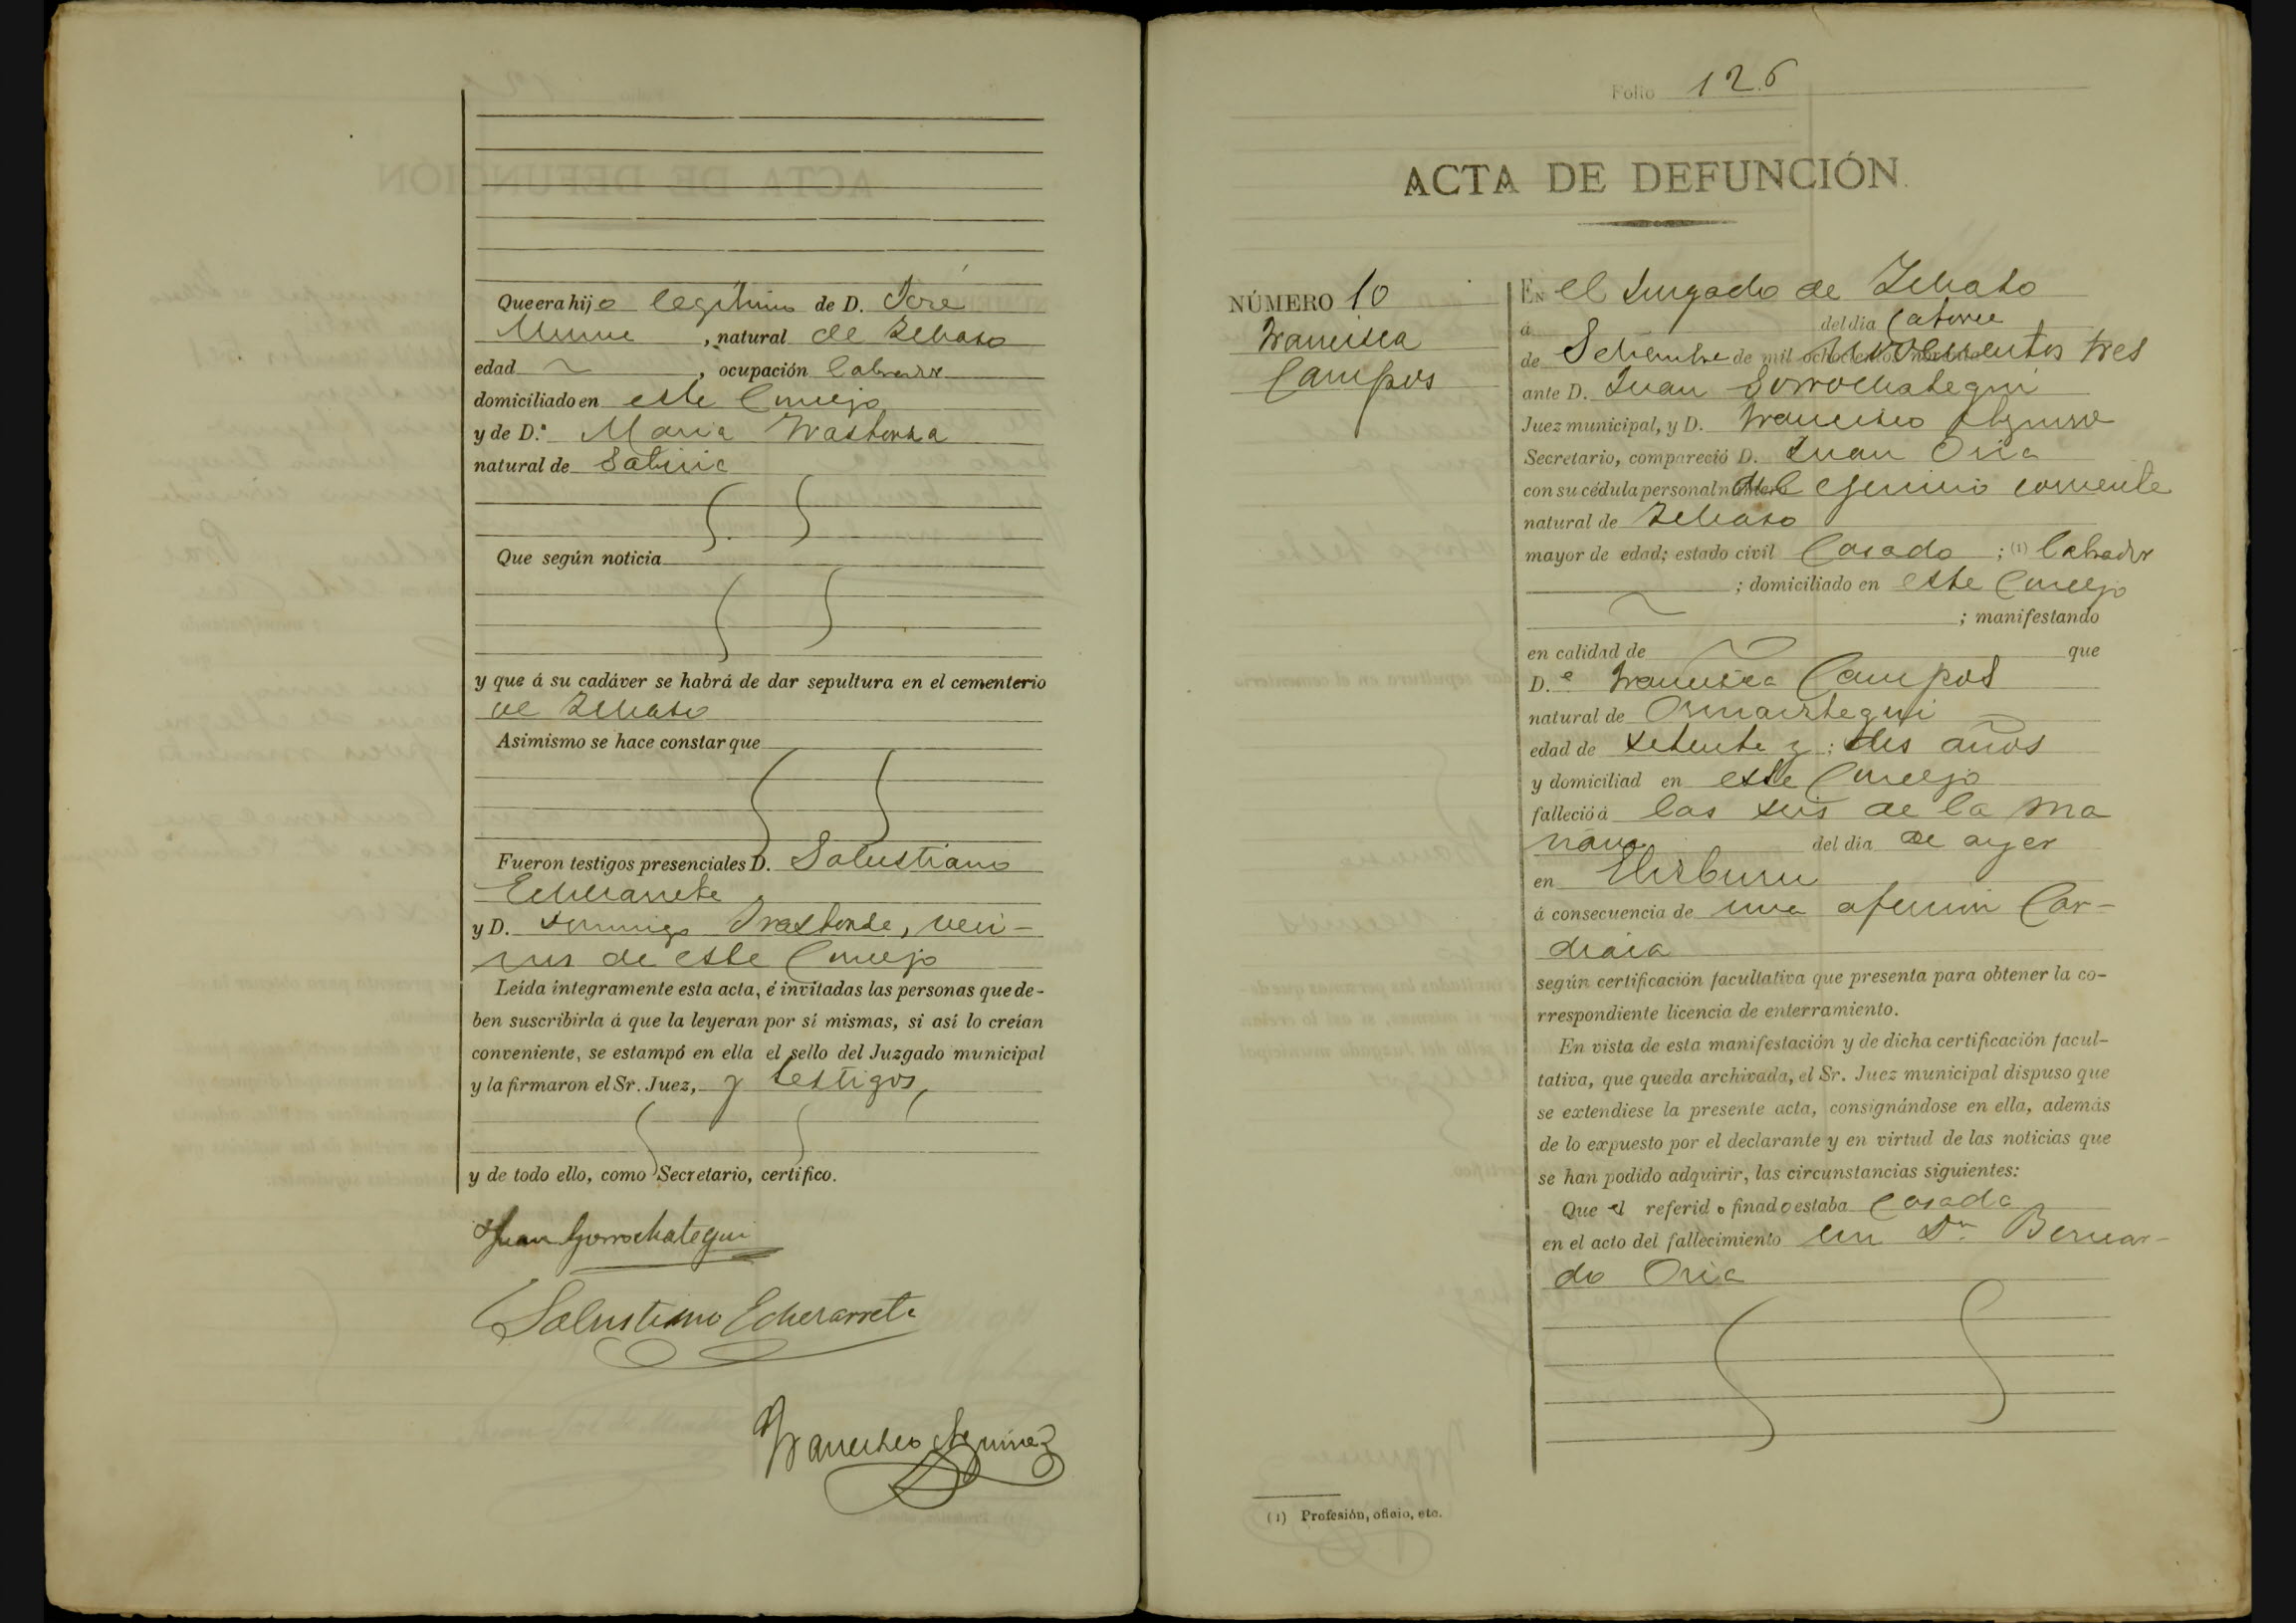 Que era hijo legítimo de D. José
Munue, natural de Ichaso
edad ~, ocupación labrador
domiciliado en este Concejo
y de D.ª Maria Irastorza
natural de
Que según noticia
y que á su cadáver se habrá de dar sepultura en el cementerio
de Ichaso
Asimismo se hace constar que
Fueron testigos presenciales D. Salustiano
Echezarreta
y D. Domingo Irastorza, veci-
nos de este Concejo
Leída íntegramente esta acta, é invitadas las personas que de-
ben suscribirla á que la leyeran por sí mismas, si así lo creían
conveniente, se estampó en ella el sello del Juzgado municipal
y la firmaron el Sr. Juez, y testigos,
y de todo ello, como Secretario, certifico.
Juan Gorrochategui
Salustiano Echezarreta
Francisco
Folio 126
ACTA DE DEFUNCIÓN.
NÚMERO 10
Francisca
Campos
EN el Juzgado de Ichaso
á del dia Catorce
de Setiembre de mil novecientos tres
ante D. Juan Gorrochategui
Juez municipal, y D. Francisco
Secretario, compareció D. Juan Oria
con su cédula personal del ejercicio corriente
natural de Ichaso
mayor de edad; estado civil Casado; (1) labrador
; domiciliado en este Concejo
~ ; manifestando
en calidad de ~ que
D.ª Francisca Campos
natural de Ormaiztegui
edad de setenta y tres años
y domiciliad en este Concejo
falleció á las seis de la ma
ñana del dia de ayer
en Elizburu
á consecuencia de una afección Car-
diaca
según certificación facultativa que presenta para obtener la co-
rrespondiente licencia de enterramiento.
En vista de esta manifestación y de dicha certificación facul-
tativa, que queda archivada, el Sr. Juez municipal dispuso que
se extendiese la presente acta, consignándose en ella, además
de lo expuesto por el declarante y en virtud de las noticias que
se han podido adquirir, las circunstancias siguientes:
Que el referido finado estaba Casada
en el acto del fallecimiento con Dn. Bernar-
do Oria
(1) Profesión, oficio, etc.